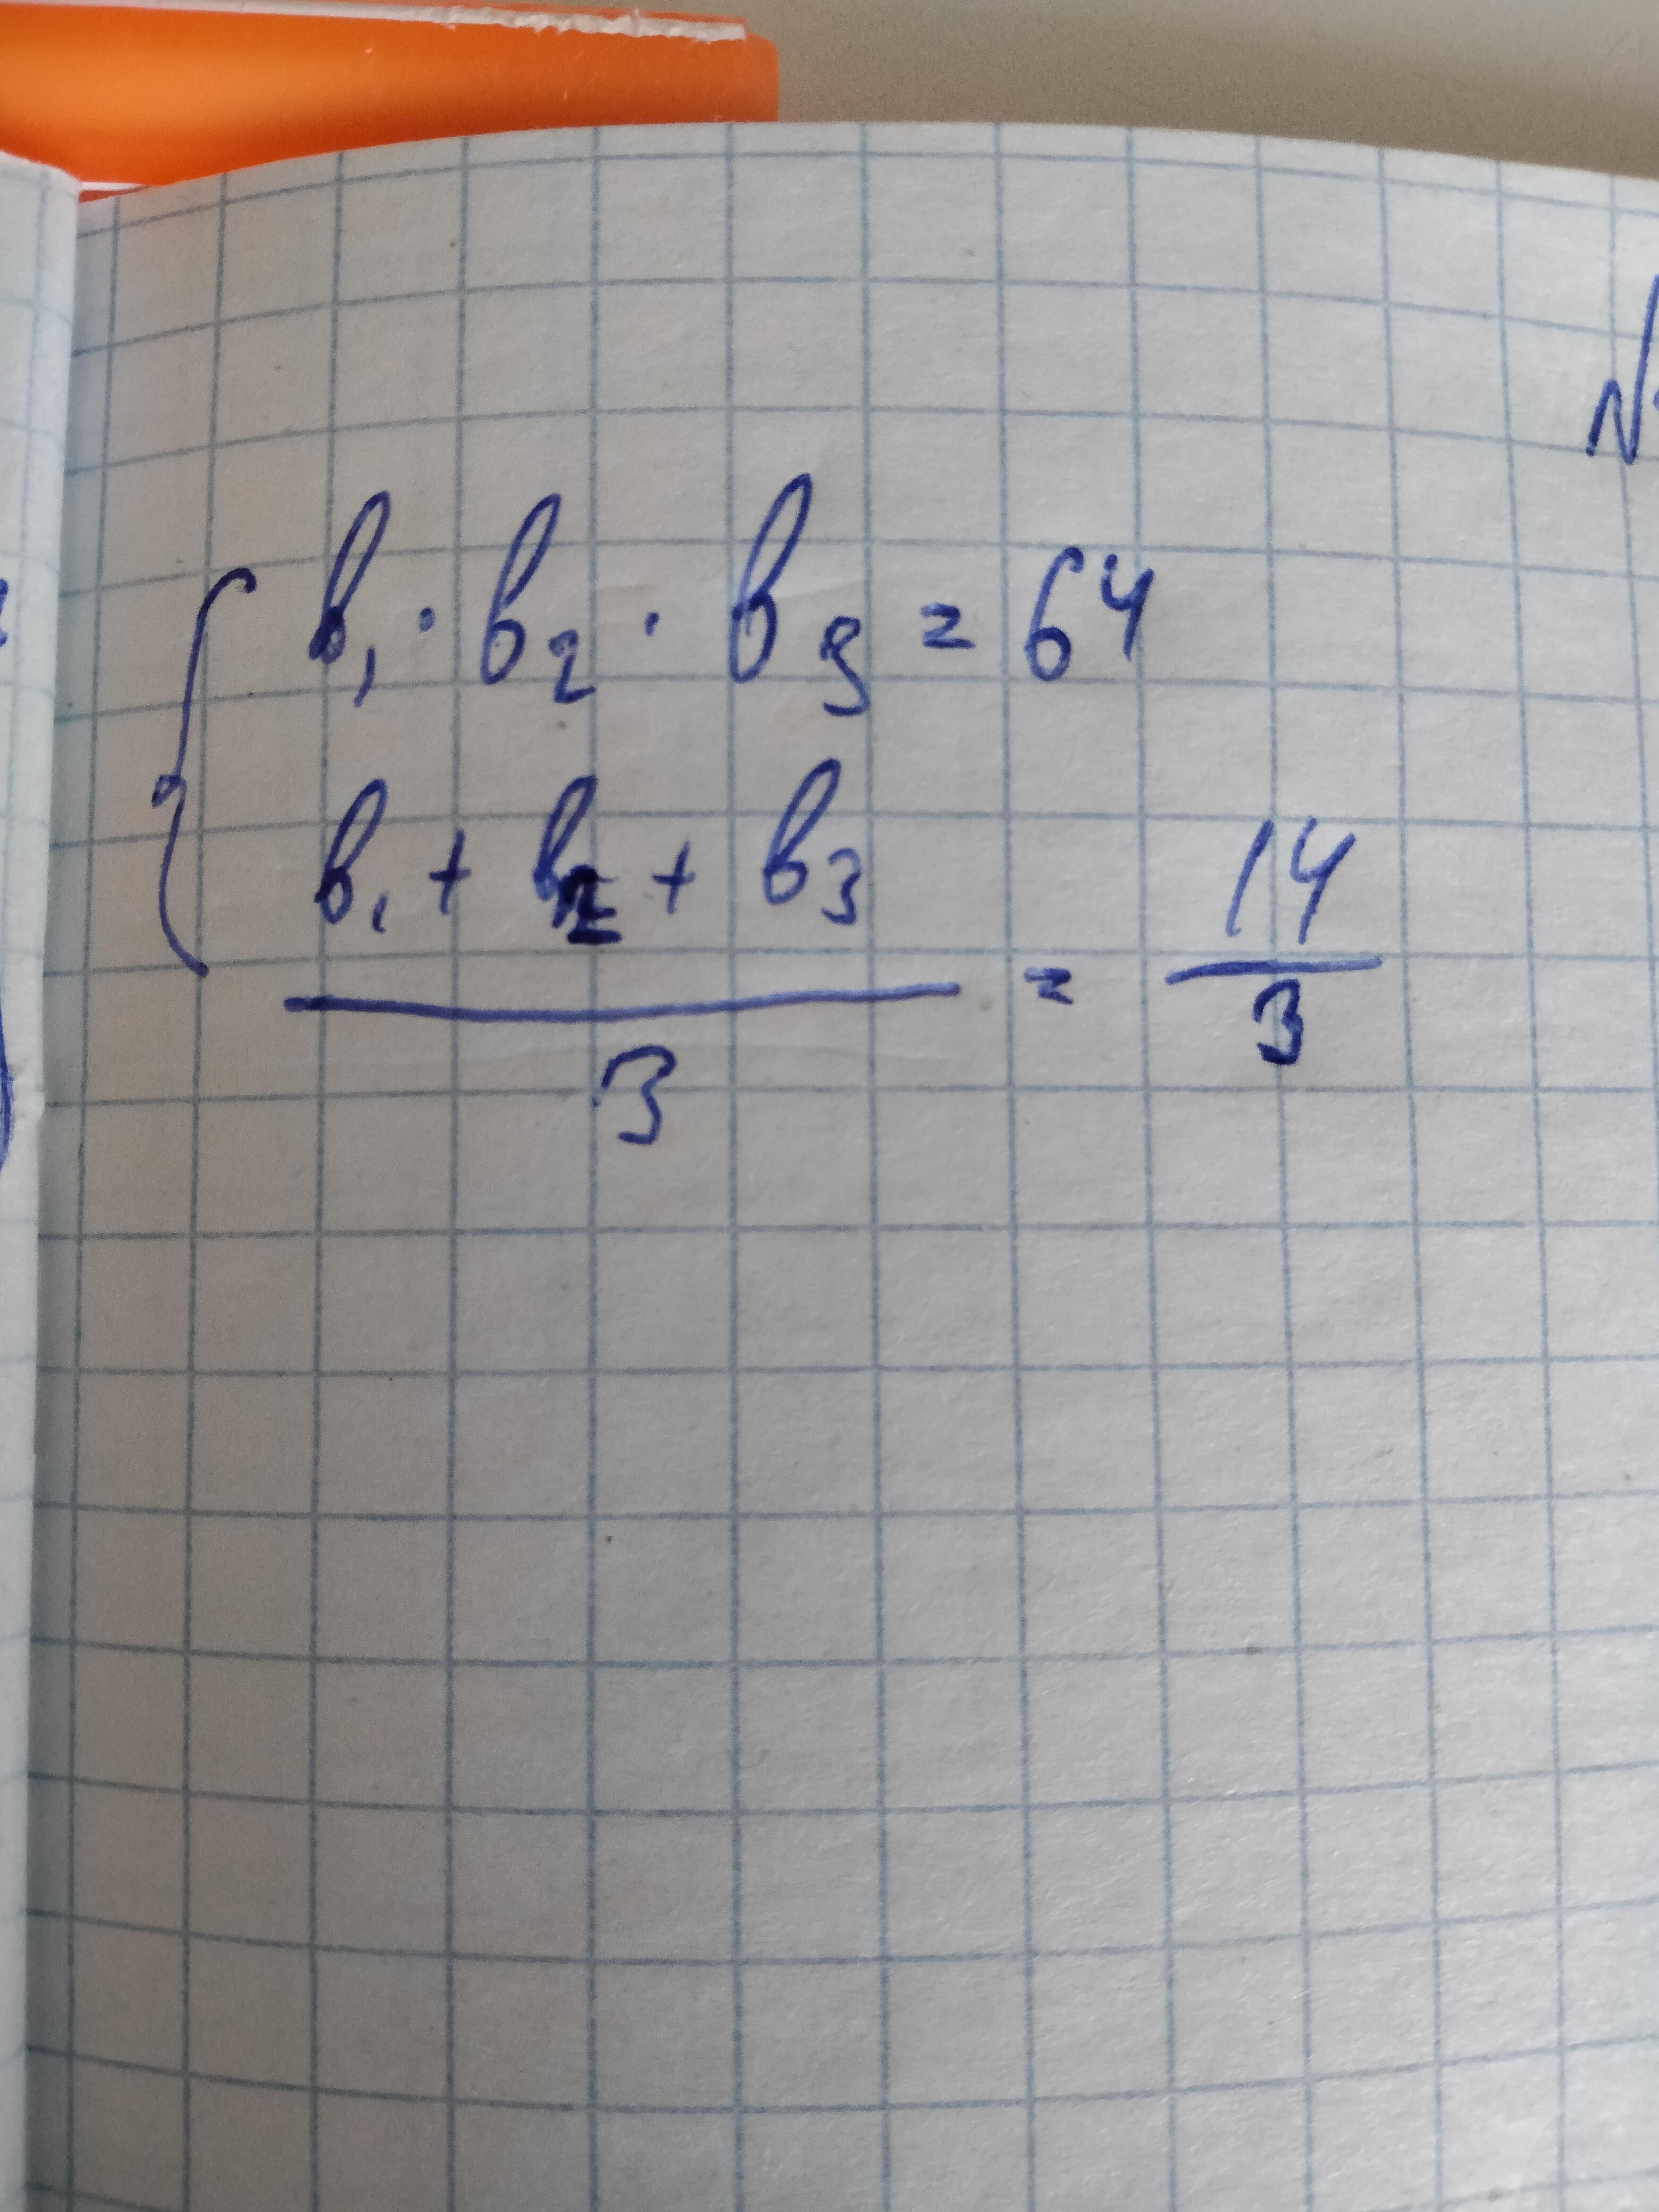 b₁ · b₂ · b₃ = 64
b₁ + b₂ + b₃
3
=
14
3